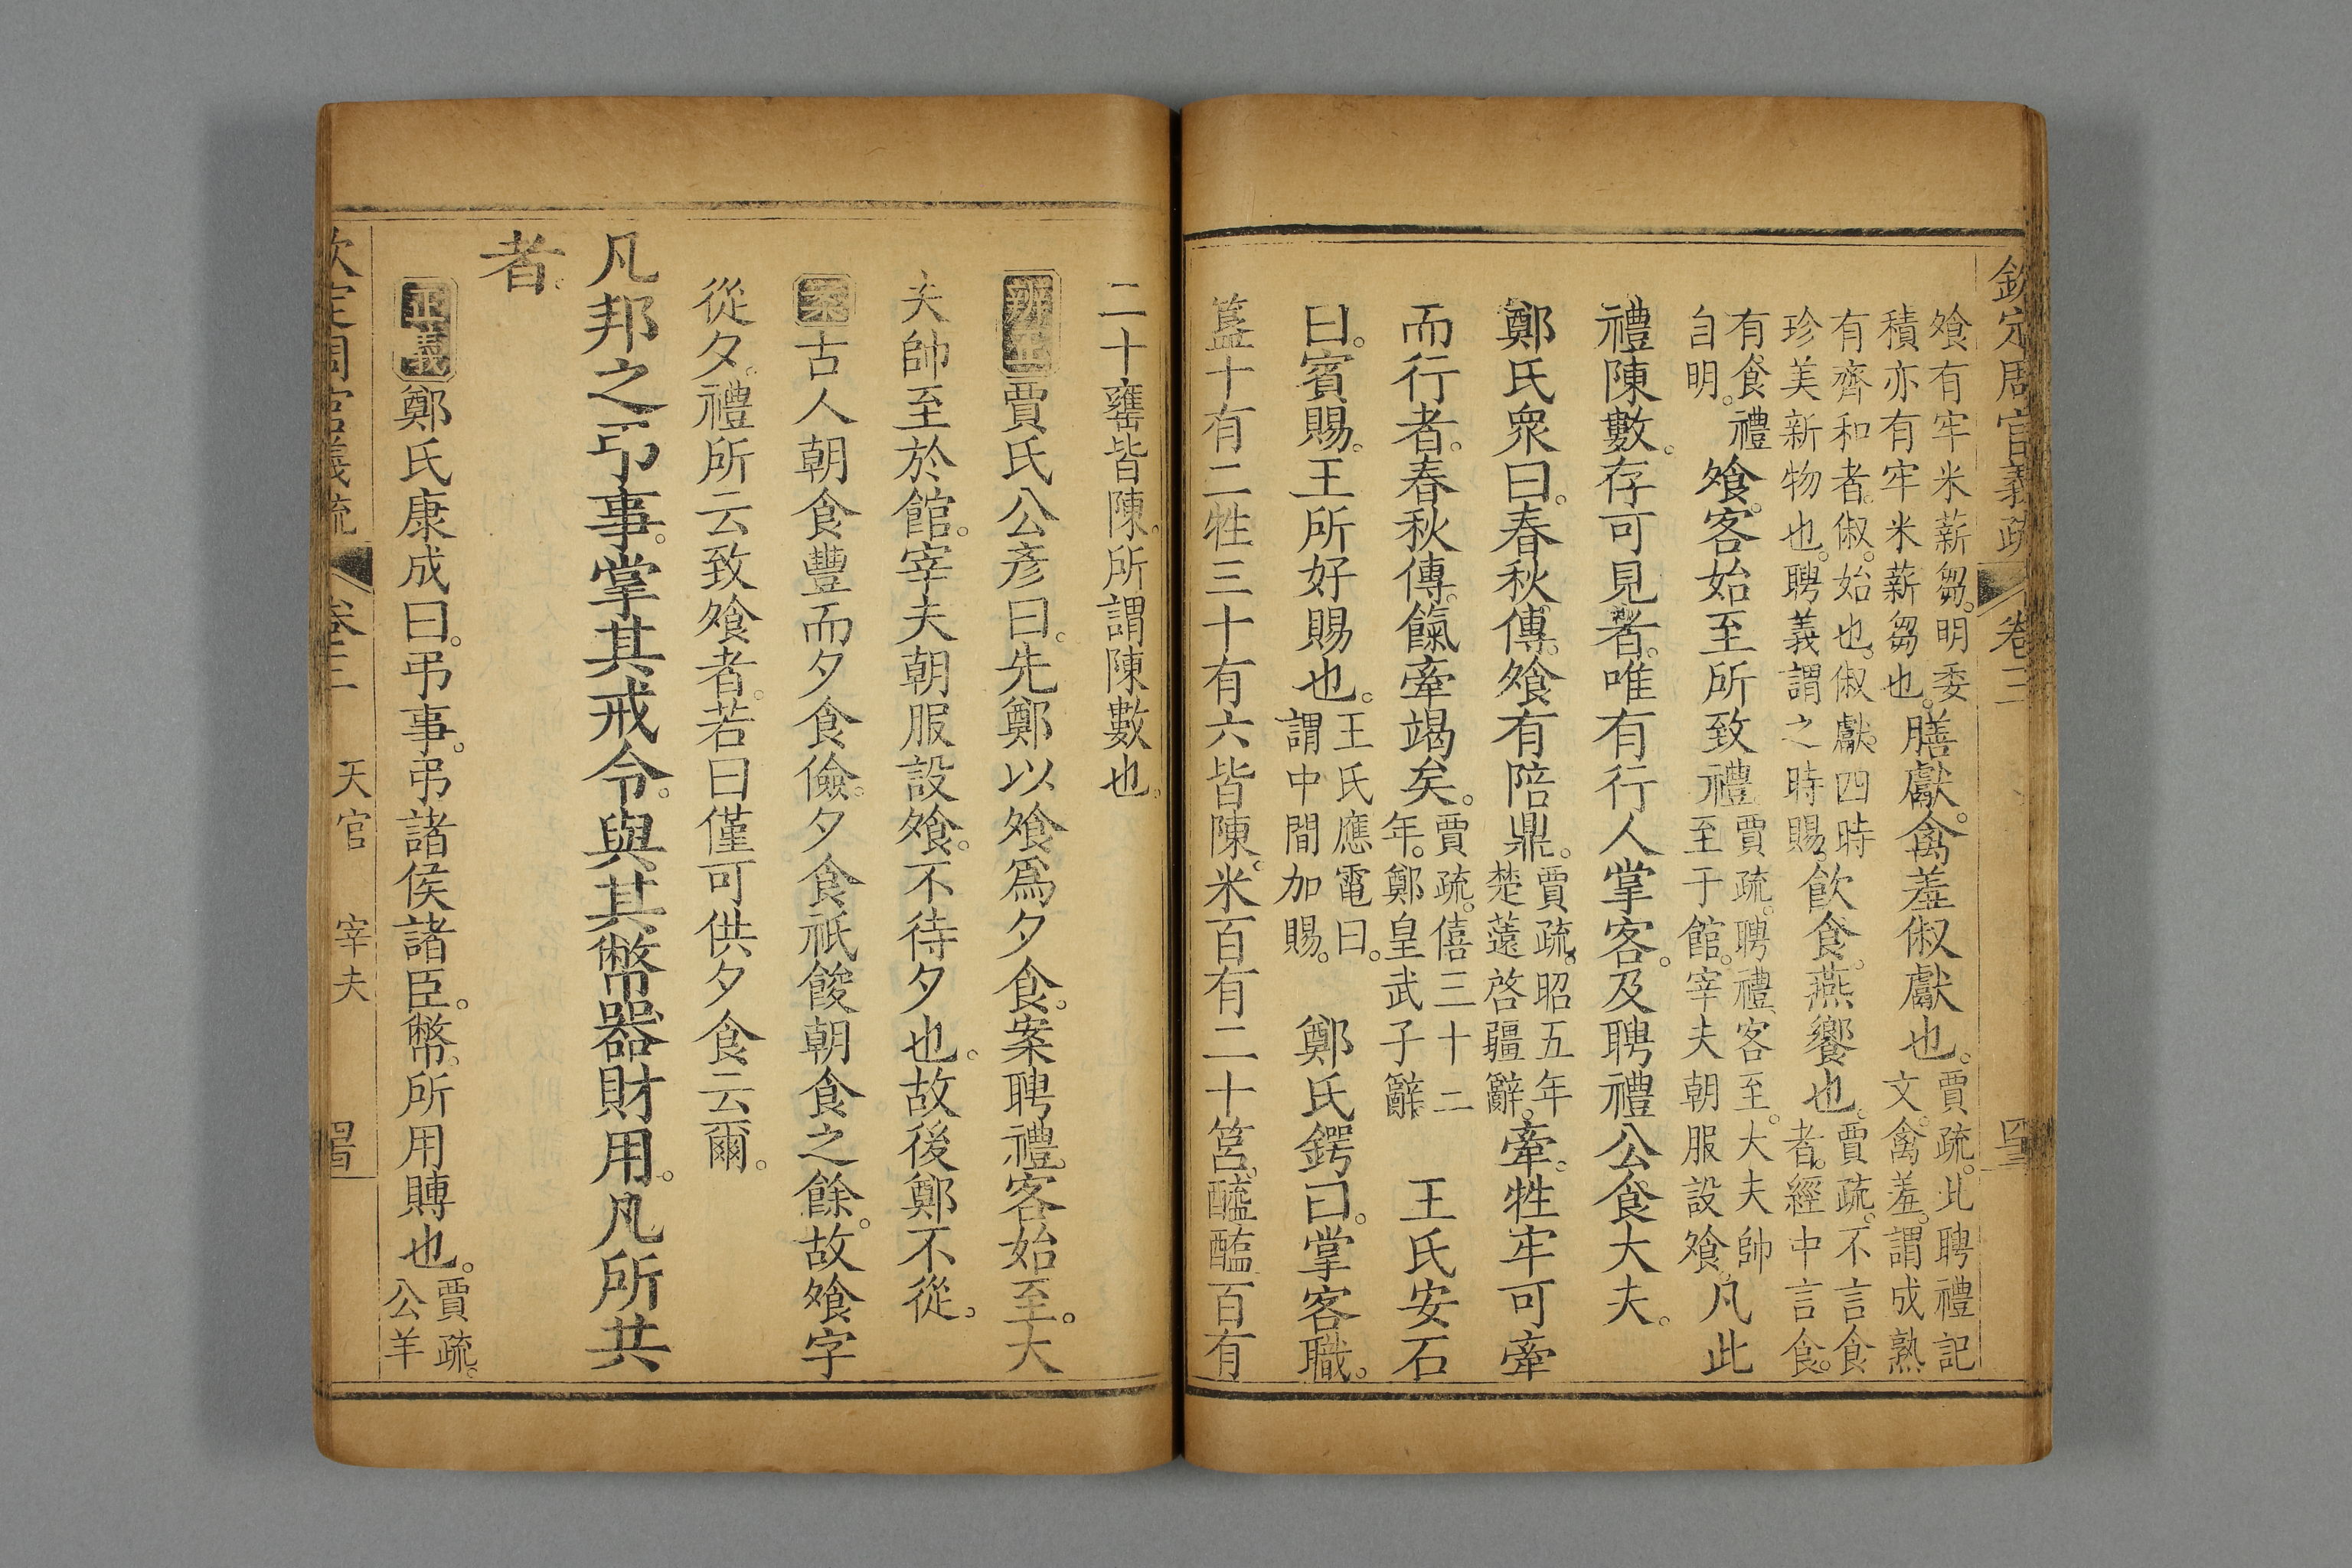 欽定周官義疏 卷三
飧有牢米薪芻。明委積亦有牢米薪芻也。膳獻。禽羞俶獻也。賈疏。此聘禮記文。禽羞。謂成熟
有齊和者。俶。始也。俶獻。四時珍美新物也。聘義謂之時賜。飲食。燕饗也。賈疏。不言食者。經中言食。
有食禮自明。飧。客始至所致禮賈疏。聘禮。客至。大夫帥至于館。宰夫朝服設飧。凡此
禮陳數。存可見者。唯有行人掌客。及聘禮公食大夫。
鄭氏衆曰。春秋傳。飧有陪鼎。賈疏。昭五年楚薳啓疆辭。牽。牲牢可牽
而行者。春秋傳。餼牽竭矣。賈疏。僖三十二年。鄭皇武子辭 王氏安石
曰。賓賜。王所好賜也。王氏應電曰。謂中間加賜。 鄭氏鍔曰。掌客職。
簠十有二牲三十有六皆陳。米百有二十筥。醯醢百有
二十罋皆陳。所謂陳數也。
辨正賈氏公彥曰。先鄭以飧爲夕食。案聘禮。客始至。大
夫帥至於館。宰夫朝服設飧。不待夕也。故後鄭不從。
案古人朝食豐而夕食儉。夕食祇餕朝食之餘。故飧字
從夕。禮所云致飧者。若曰僅可供夕食云爾。
凡邦之弔事。掌其戒令。與其幣器財用。凡所共
者。
正義鄭氏康成曰。弔事。弔諸侯諸臣。幣。所用賻也。賈疏。公羊
欽定周官義疏 卷三 天官 宰夫